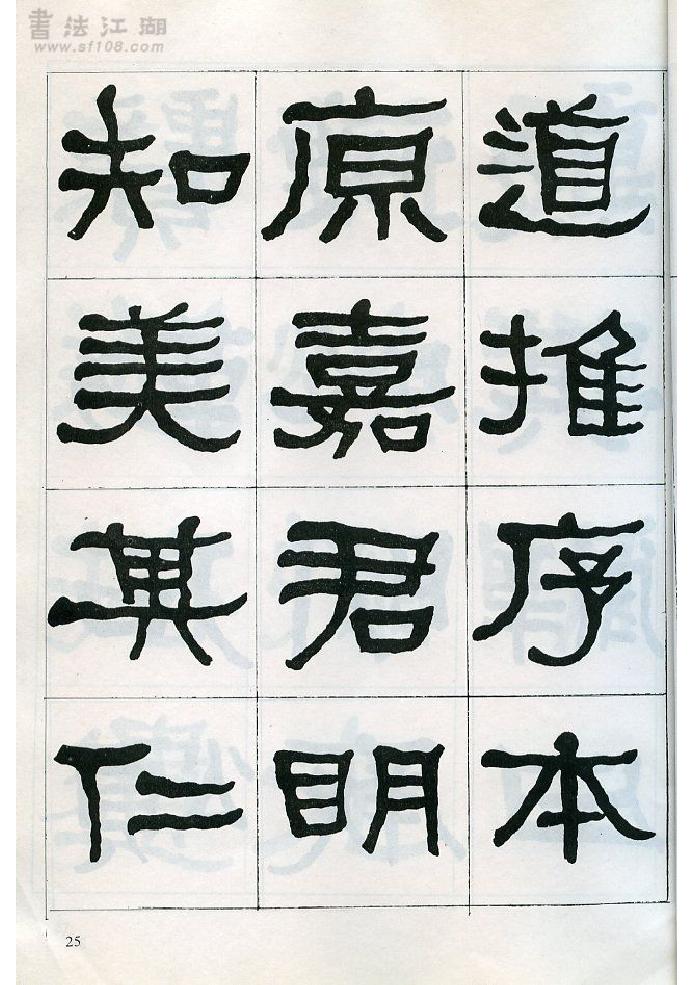 書法江湖
www.sf108.com
道推序本
原嘉君明
知美其仁
25